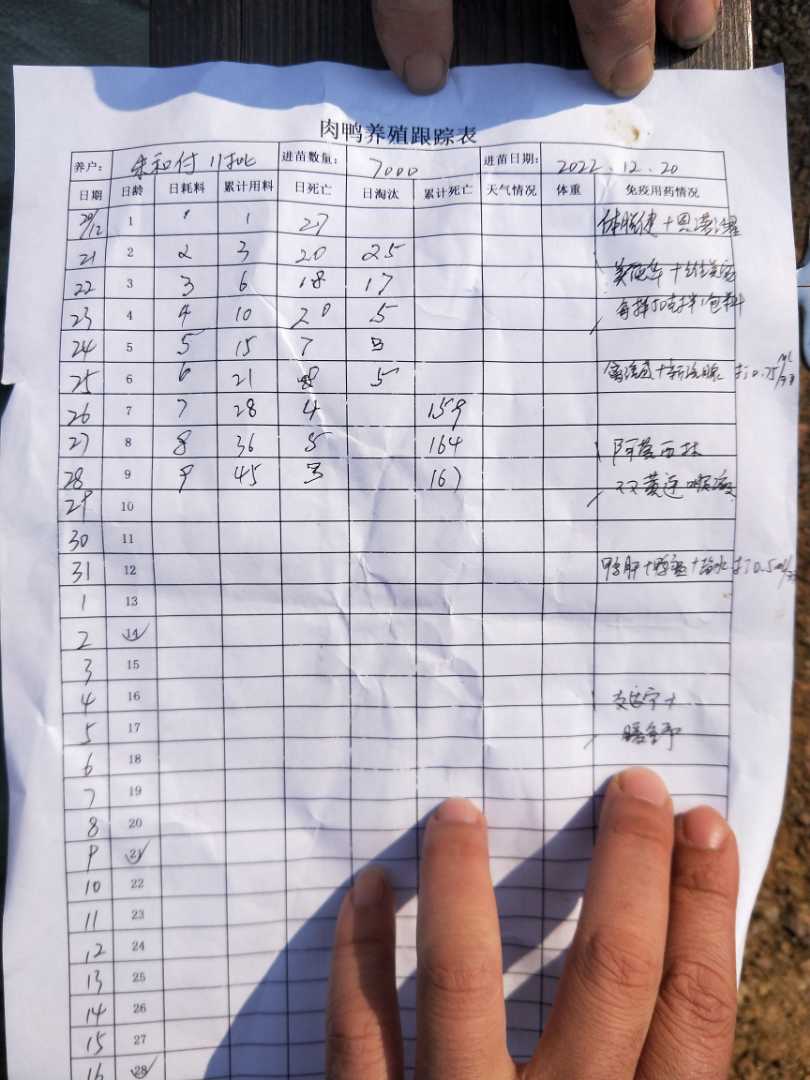 肉鸭养殖跟踪表
养户: 朱和付 11批 进苗数量: 7000 进苗日期: 2022.12.20
日期 日龄 日耗料 累计用料 日死亡 日淘汰 累计死亡 天气情况 体重 免疫用药情况
20/12 1 1 1 27
21 2 2 3 20 25
22 3 3 6 18 17
23 4 4 10 20 5
24 5 5 15 7 3
25 6 6 21 8 5 打0.75
26 7 7 28 4 159
27 8 8 36 5 164 阿莫西林
28 9 9 45 3 167 双黄连
29 10
30 11
31 12 鸭肝+ 打0.5
1 13
2 14
3 15
4 16
5 17
6 18
7 19
8 20
9 21
10 22
11 23
12 24
13 25
14 26
15 27
16 28